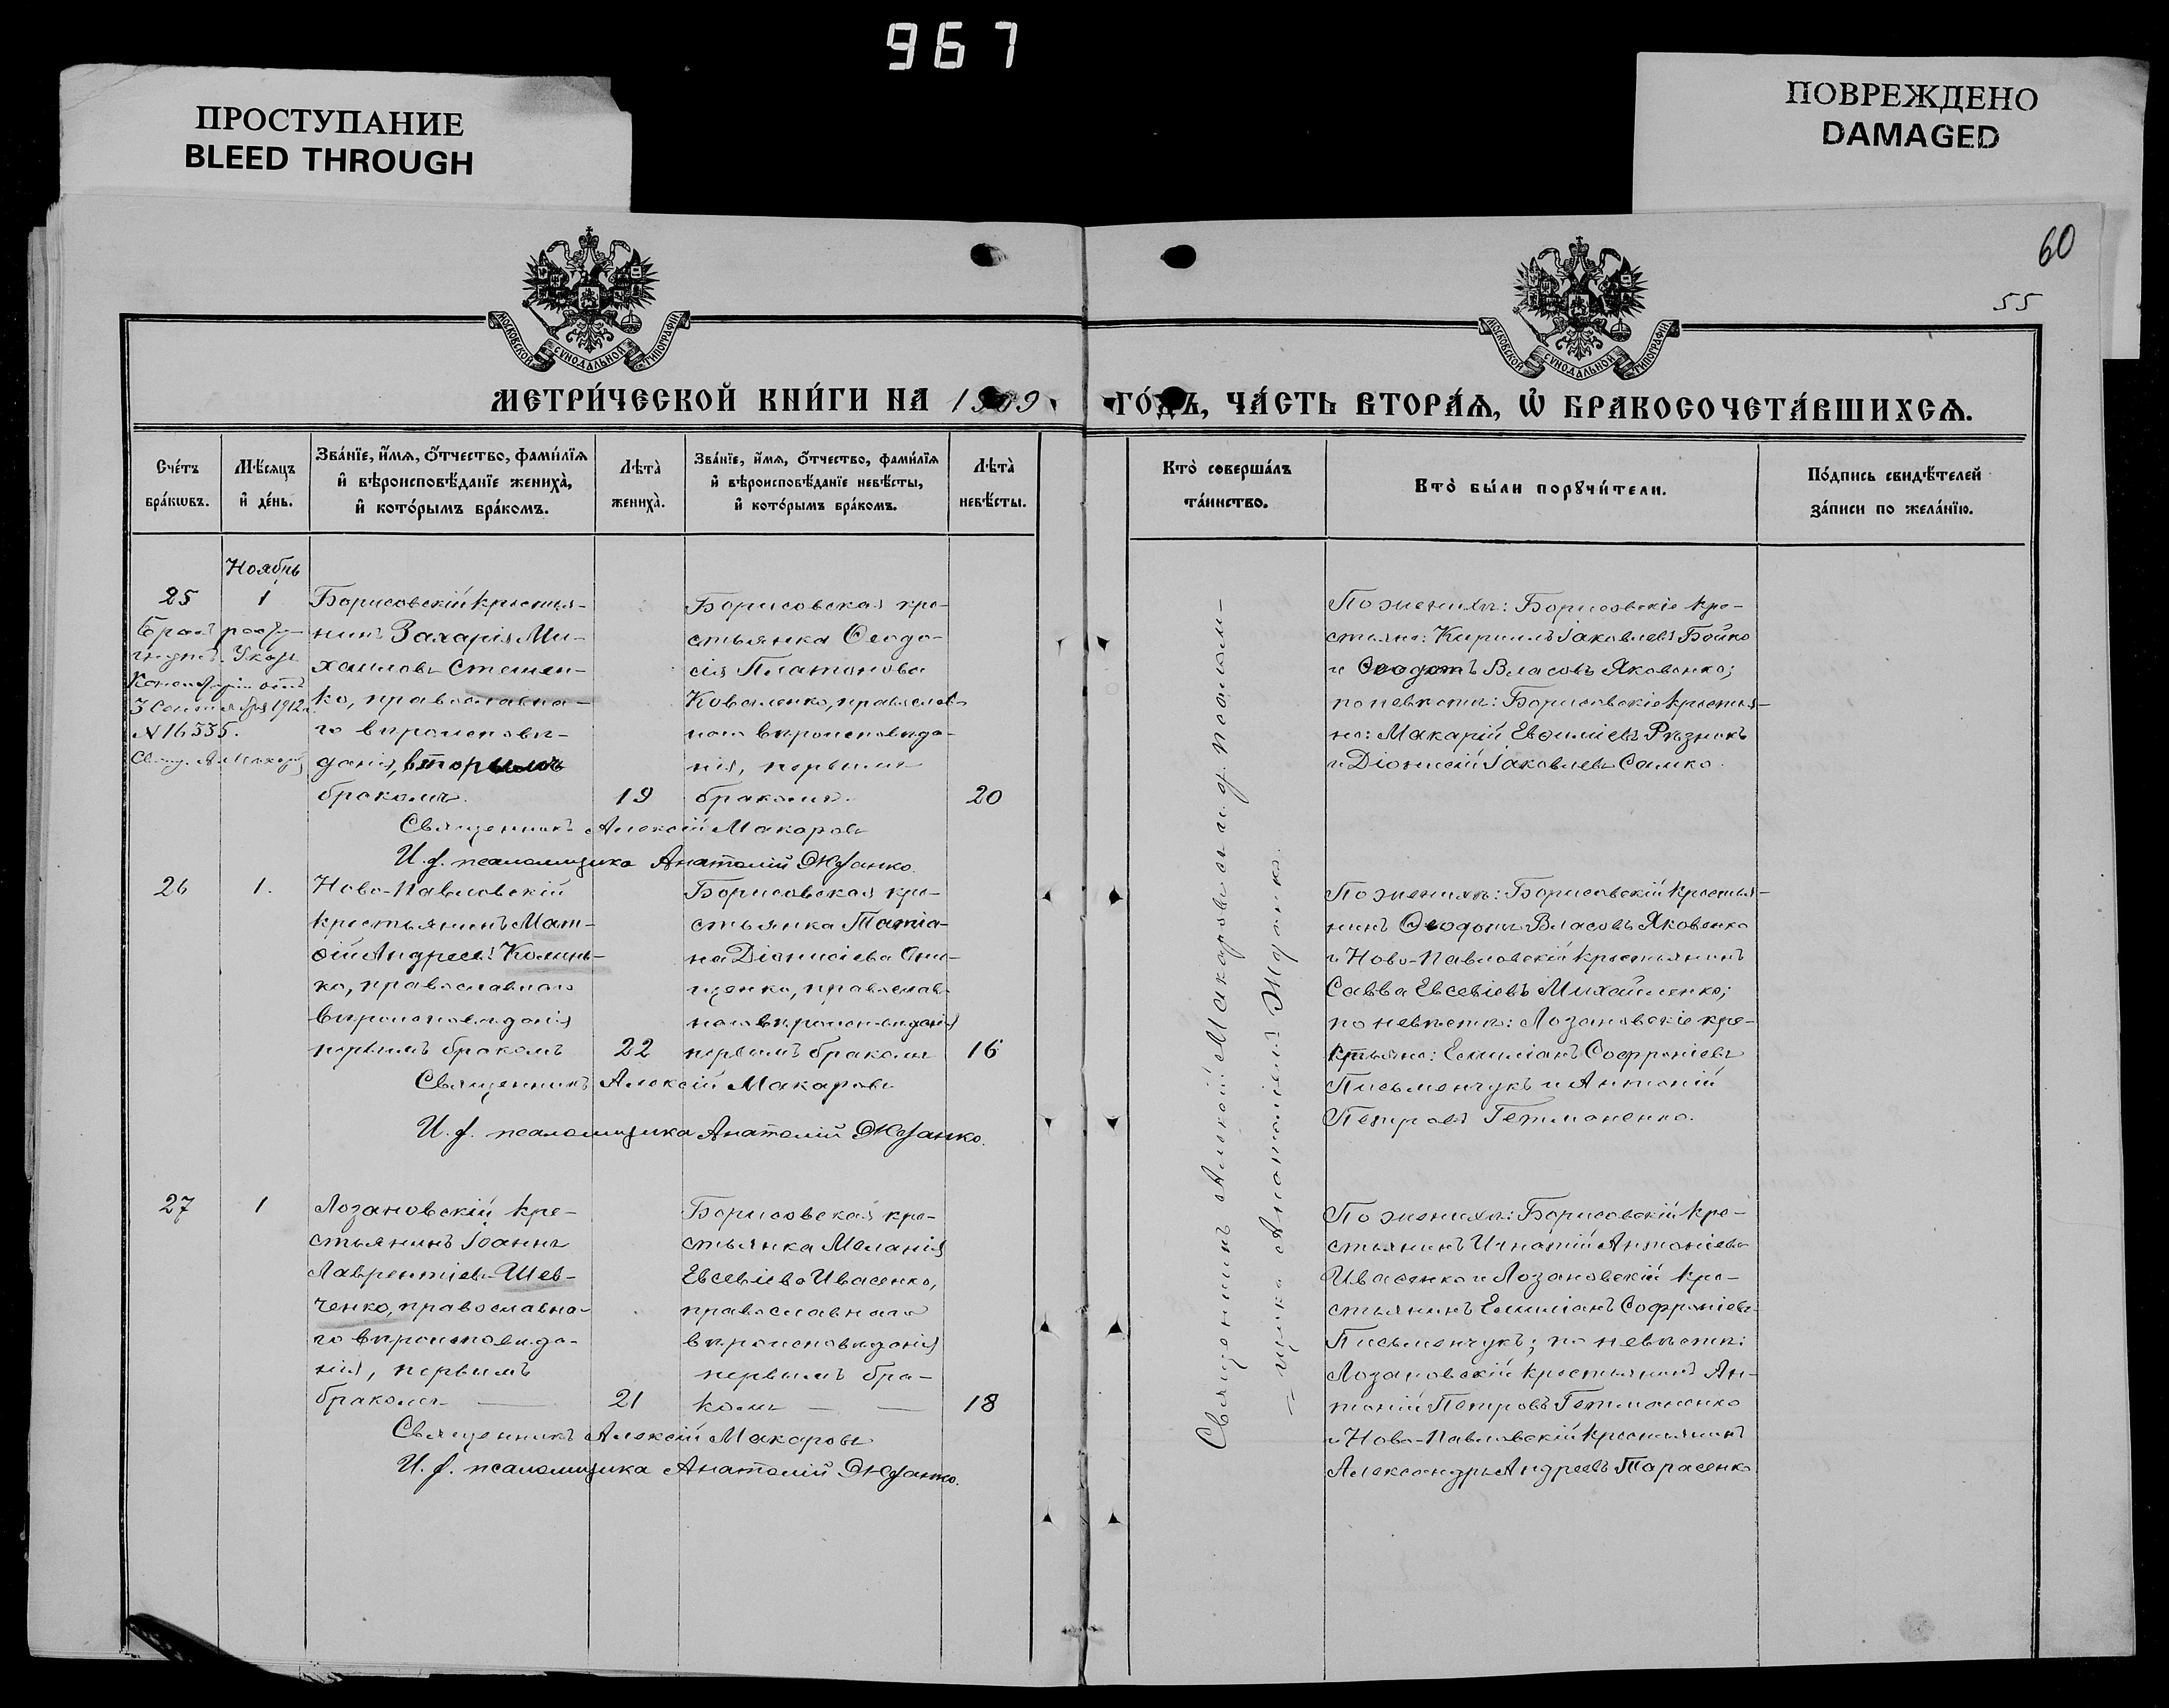 967
ПРОСТУПАНИЕ
BLEED THROUGH
ПОВРЕЖДЕНО
DAMAGED
60
55
МОСКОВСКОЙ СѴНОДАЛЬНОЙ ТИПОГРАФІИ
МОСКОВСКОЙ СѴНОДАЛЬНОЙ ТИПОГРАФІИ
МЕТРИ́ЧЕСКОЙ КНИ́ГИ НА 1909
ГО́ДЪ, ЧА́СТЬ ВТОРА́Ѧ, Ѡ҆ БРАКОСОЧЕТА́ВШИХСѦ.
Сче́тъ бра́кѡвъ.
Мѣ́сяцъ и҆ де́нь.
Зва́нїе, и҆́мѧ, ѻ҆́тчество, фами́лїѧ и҆ вѣроисповѣ́данїе жениха̀, и҆ кото́рымъ бра́комъ.
Лѣта̀ жениха̀.
Зва́нїе, и҆́мѧ, ѻ҆́тчество, фами́лїѧ и҆ вѣроисповѣ́данїе невѣ́сты, и҆ кото́рымъ бра́комъ.
Лѣта̀ невѣ́сты.
Кто̀ соверша́лъ та́инство.
Кто̀ бы́ли порꙋчи́тели.
По́дпись свидѣ́телей за́писи по жела́нїю.
Ноябрь
25
1
Бракъ
Указ
Консисторіи отъ
3 Сентября 1912 г.
№ 16335.
Свящ. А. Макаровъ
Борисовскій крестья-
нинъ Захарія Ми-
хаиловъ Степен-
ко, православна-
го вѣроисповѣ-
данія, вторымъ
бракомъ.
19
Борисовская кре-
стьянка Ѳеодо-
сія Платонова
Коваленко, православ-
наго вѣроисповѣда-
нія, первымъ
бракомъ.
20
Священникъ Алексій Макаровъ
И. д. псаломщика Анатолій
По женихѣ: Борисовскіе кре-
стьяне: Кириллъ Іаковлевъ Бойко
и Ѳеодотъ Власовъ Яковенко;
по невѣстѣ: Борисовскіе крестья-
не: Макарій Евѳиміевъ Рѣзникъ
и Діонисій Іаковлевъ Сашко.
26
1.
Ново-Павловскій
крестьянинъ Мат-
ѳій Андреевъ
ко, православнаго
вѣроисповѣданія
первымъ бракомъ
22
Борисовская кре-
стьянка Татіа-
на Діонисіева Они-
щенко, православ-
наго вѣроисповѣданія
первымъ бракомъ
16
Священникъ Алексій Макаровъ
И. д. псаломщика Анатолій
По женихѣ: Борисовскій крестья-
нинъ Ѳеодотъ Власовъ Яковенко
и Ново-Павловскій крестьянинъ
Савва Евсевіевъ Михайленко;
по невѣстѣ: Лозановскіе кре-
стьяне: Емиліанъ Софроніевъ
Письменчукъ и Антоній
Петровъ Гетманенко.
27
1
Лозановскій кре-
стьянинъ Іоаннъ
Лаврентіевъ Шев-
ченко, православна-
го вѣроисповѣда-
нія, первымъ
бракомъ
21
Борисовская кре-
стьянка Меланія
Евсевіева Ивасенко,
православнаго
вѣроисповѣданія
первымъ бра-
комъ
18
Священникъ Алексій Макаровъ
И. д. псаломщика Анатолій
По женихѣ: Борисовскій кре-
стьянинъ Игнатій Антоніевъ
Ивасенко и Лозановскій кре-
стьянинъ Емиліанъ Софроніевъ
Письменчукъ; по невѣстѣ:
Лозановскій крестьянинъ Ан-
тоній Петровъ Гетманенко
и Ново-Павловскій крестьянинъ
Александръ Андреевъ Тарасенко
Священникъ Алексій Макаровъ и и. д. псалом-
щика Анатолій